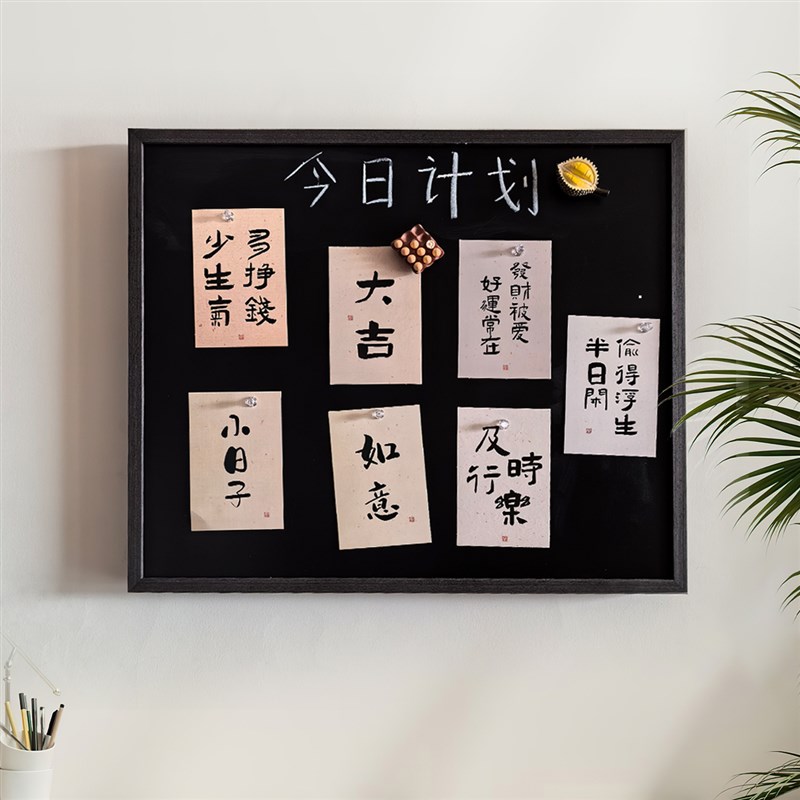 今日计划
多掙錢
少生氣
大吉
發財被愛
好運常在
偷得浮生
半日閑
小日子
如意
及時
行樂